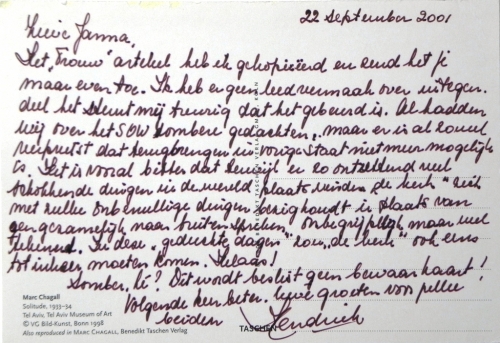 22 September 2001
Lieve Janna,
Het „Trouw" artikel heb ik gekopieerd en zend het je
maar even toe. Ik heb er geen leedvermaak over integen-
deel het stemt mij treurig dat het gebeurd is. Al hadden
wij over het SOW sombere gedachten, maar er is al zoveel
verpriest dat terugbrengen in vorige staat niet meer mogelijk
is. Het is vooral bitter dat terwijl er zo ontzettend veel
schokkende dingen in de wereld plaats vinden „de kerk" zich
met zulke onbenullige dingen bezighoudt in plaats van
gezamenlijk naar buiten spreken, onbegrijpelijk maar veel
tekenend. In deze „gedachte dagen" zou „de kerk" ook eens
tot inkeer moeten komen. Helaas!
Somber, hè? Dit wordt beslist geen bewaarkaart!
Volgende keer beter. Lieve groeten voor jullie
beiden Hendrik
Marc Chagall
Solitude, 1933-54
Tel Aviv, Tel Aviv Museum of Art
© VG Bild-Kunst, Bonn 1998
Also reproduced in MARC CHAGALL, Benedikt Taschen Verlag
TASCHEN